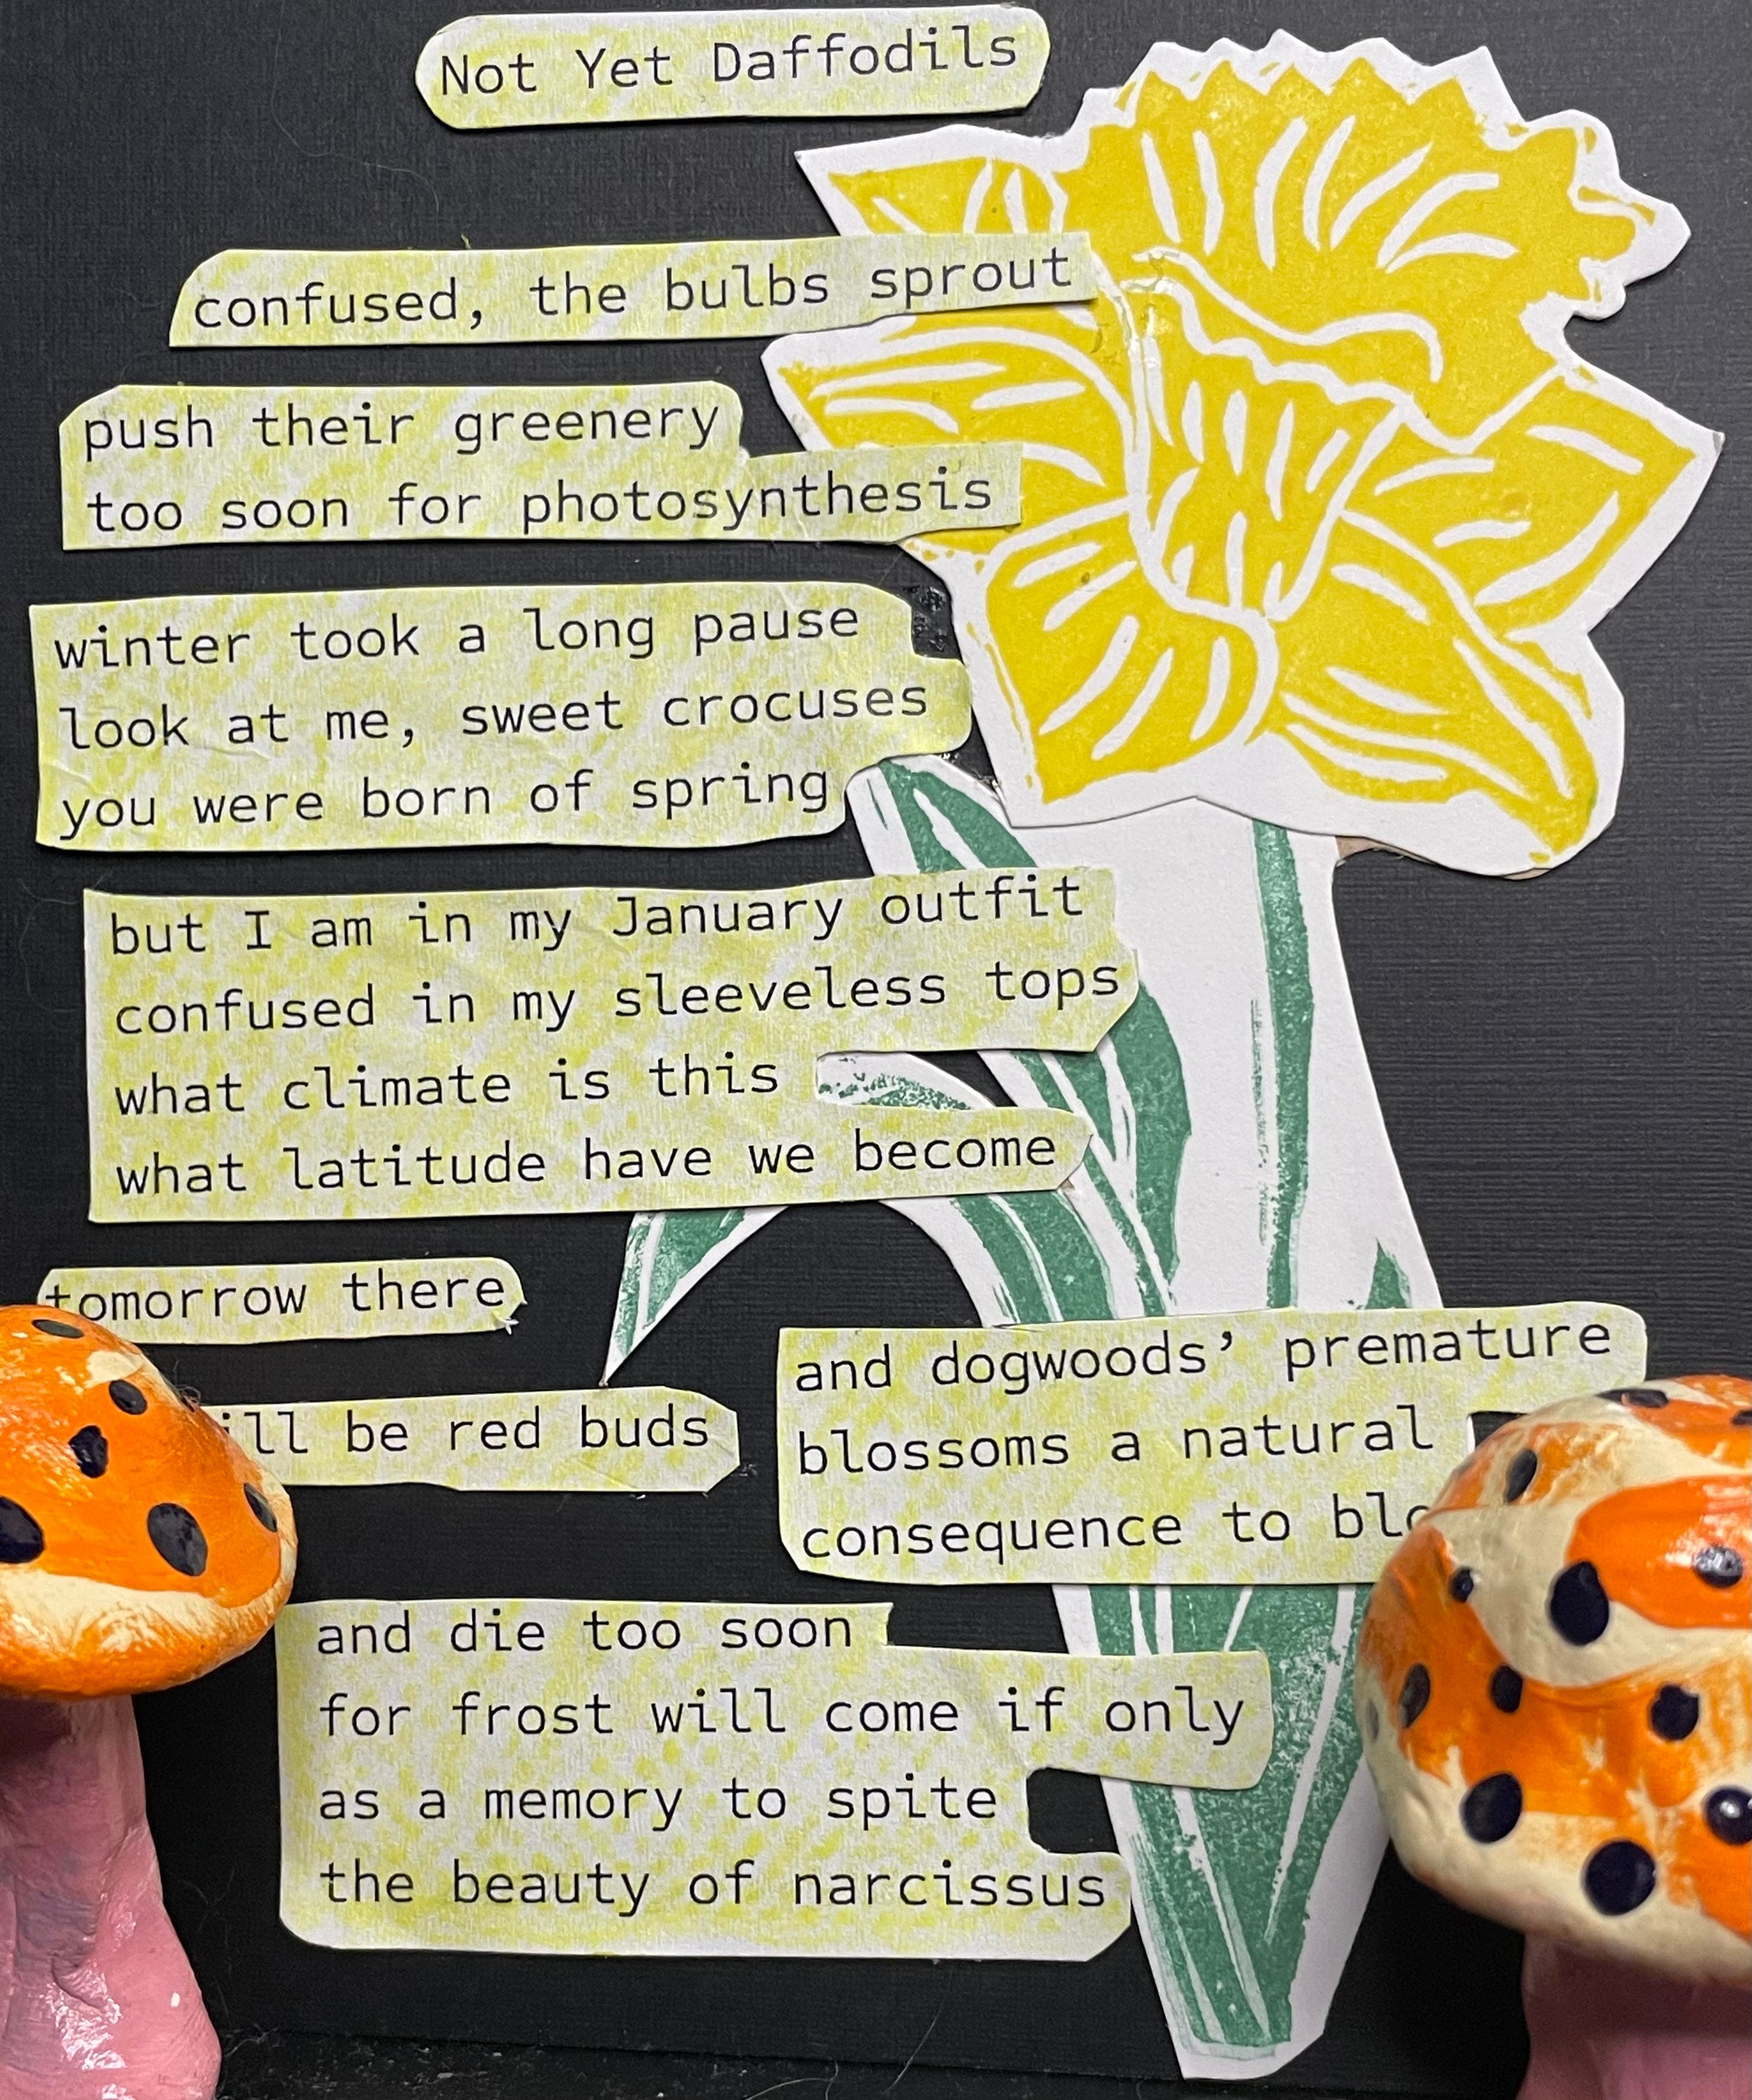 Not Yet Daffodils
confused, the bulbs sprout
push their greenery
too soon for photosynthesis
winter took a long pause
look at me, sweet crocuses
you were born of spring
but I am in my January outfit
confused in my sleeveless tops
what climate is this
what latitude have we become
tomorrow there
be red buds
and dogwoods’ premature
blossoms a natural
consequence to
and die too soon
for frost will come if only
as a memory to spite
the beauty of narcissus